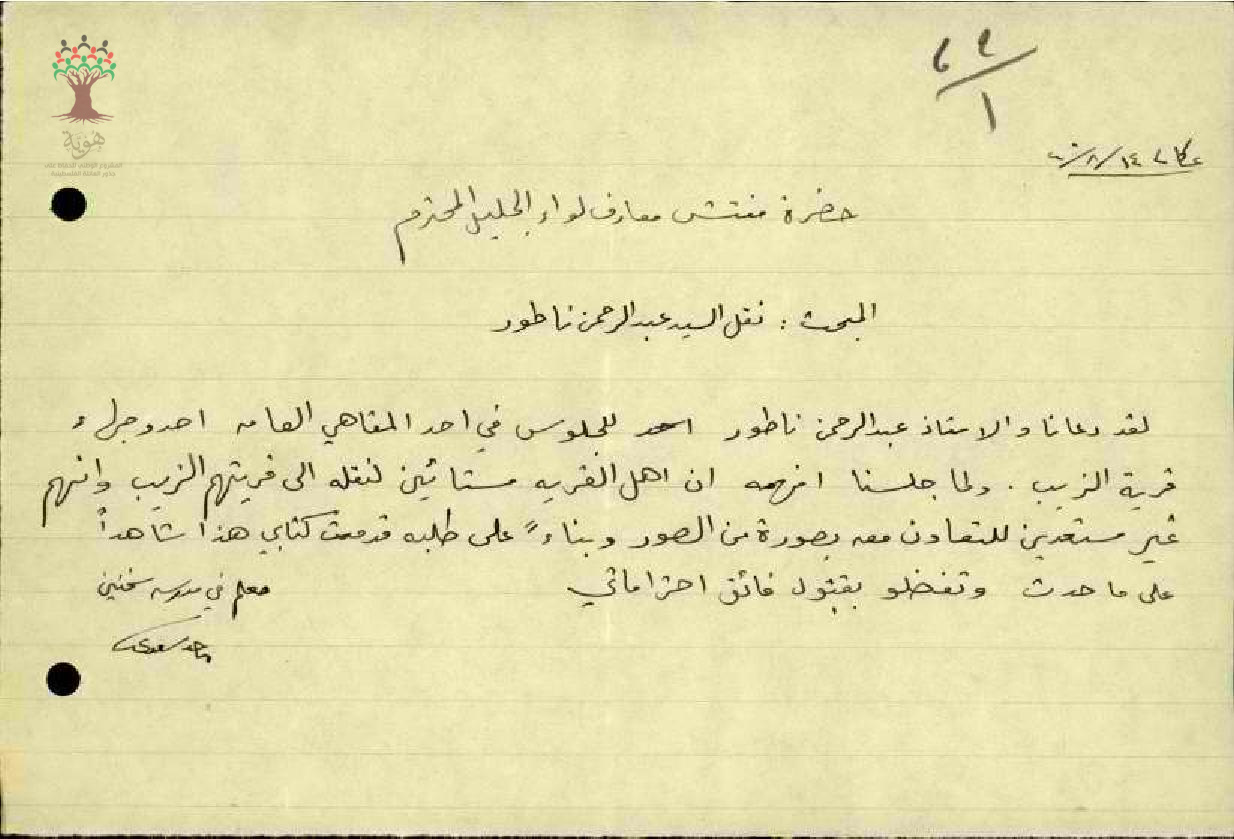 هوية
المشروع الوطني للحفاظ على
جذور العائلة الفلسطينية
عكا في ١٤/٨/
حضرة مفتش معارف لواء الجليل المحترم
المبحث : نقل السيد عبدالرحمن ناطور
لقد دعانا والاستاذ عبدالرحمن ناطور للجلوس في احد المقاهي العامه احد وجهاء
قرية الزيب . ولما جلسنا افهمه ان اهل القريه مستائين لنقله الى قريتهم الزيب وانهم
غير مستعدين للتعاون معه بصورة من الصور وبناءً على طلبه قدمت كتابي هذا شاهداً
على ما حدث وتفضلو بقبول فائق احتراماتي
معلم في مدرسه سخنين